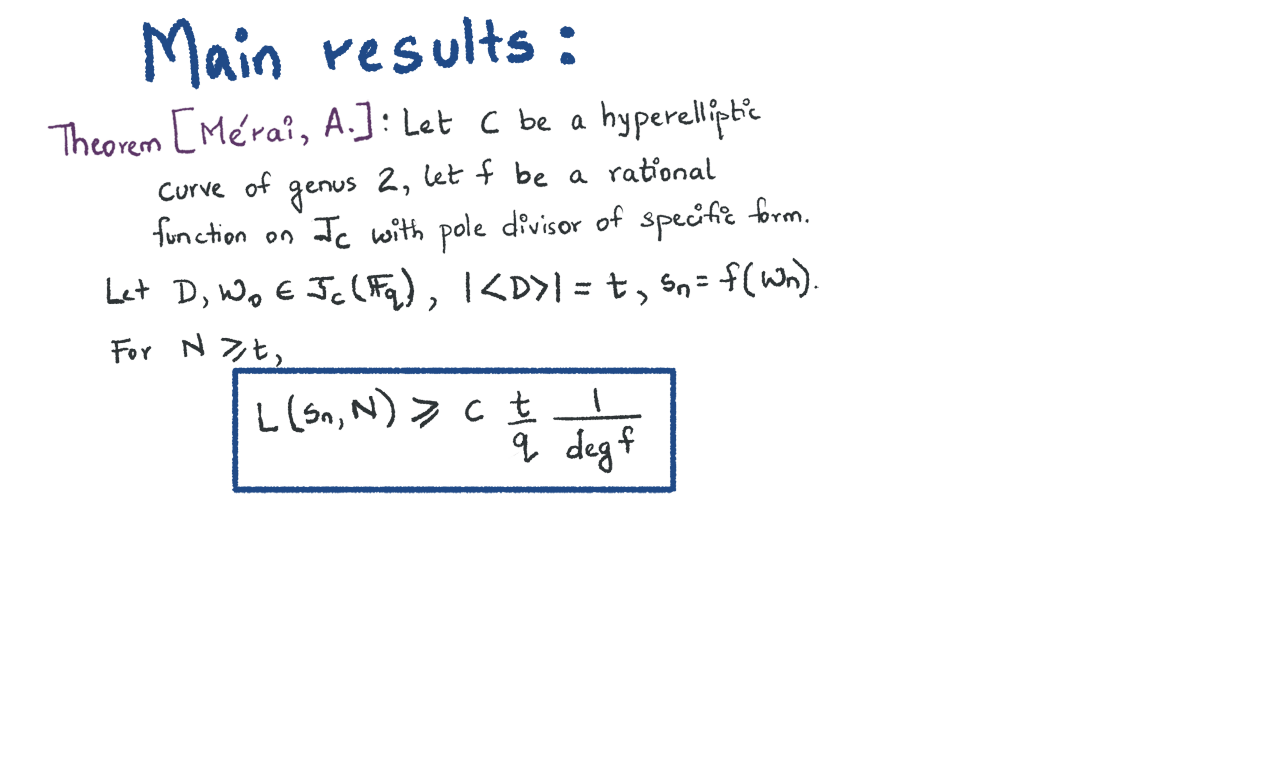 Main results:
Theorem [Mérai, A.]: Let C be a hyperelliptic
curve of genus 2, let f be a rational
function on J_C with pole divisor of specific form.
Let D, W_0 ∈ J_C(𝔽_q), |<D>| = t, s_n = f(W_n).
For N ⩾ t,
L(s_n, N) ⩾ c t/q 1/deg f